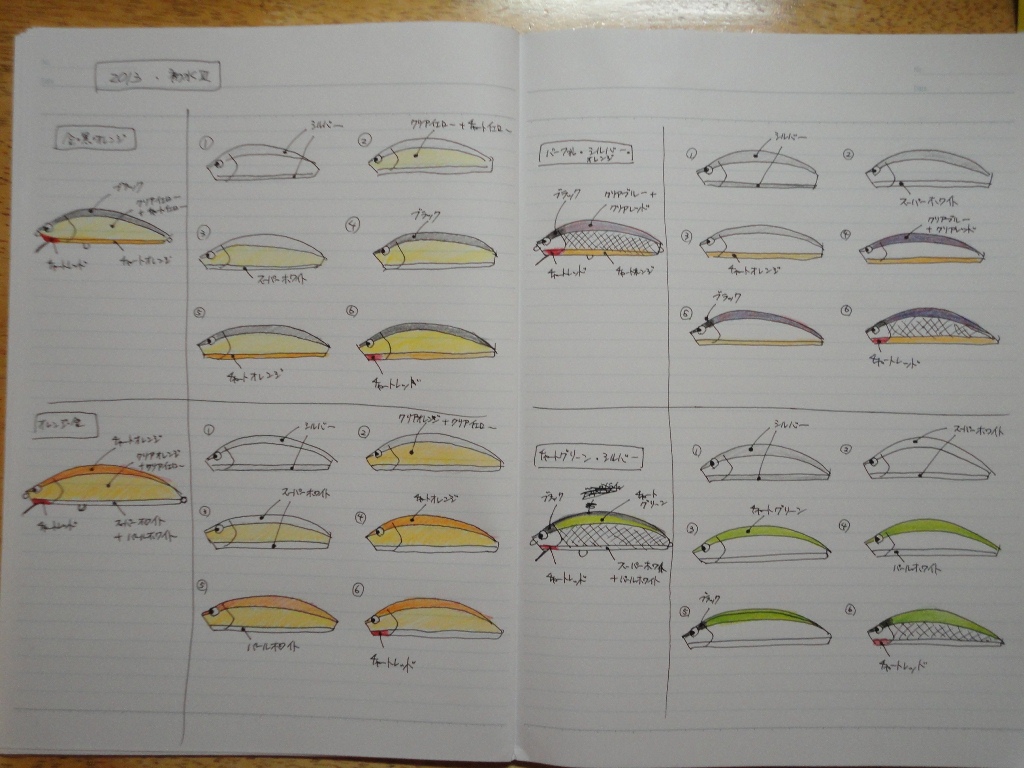 2013・
金・黒・オレンジ
ブラック
クリアイエロー
+チャートイエロー
チャートレッド
チャートオレンジ
①
シルバー
②
クリアイエロー+チャートイエロー
③
スーパーホワイト
④
ブラック
⑤
チャートオレンジ
⑥
チャートレッド
オレンジ・金
チャートオレンジ
クリアオレンジ
+クリアイエロー
チャートレッド
スーパーホワイト
+パールホワイト
①
シルバー
②
クリアオレンジ+クリアイエロー
③
スーパーホワイト
④
チャートオレンジ
⑤
パールホワイト
⑥
チャートレッド
パープル・シルバー・
オレンジ
ブラック
クリアブルー+
クリアレッド
チャートレッド
チャートオレンジ
①
シルバー
②
スーパーホワイト
③
チャートオレンジ
④
クリアブルー
+クリアレッド
⑤
ブラック
⑥
チャートレッド
チャートグリーン・シルバー
ブラック
チャート
グリーン
チャートレッド
スーパーホワイト
+パールホワイト
①
シルバー
②
スーパーホワイト
③
チャートグリーン
④
パールホワイト
⑤
ブラック
⑥
チャートレッド